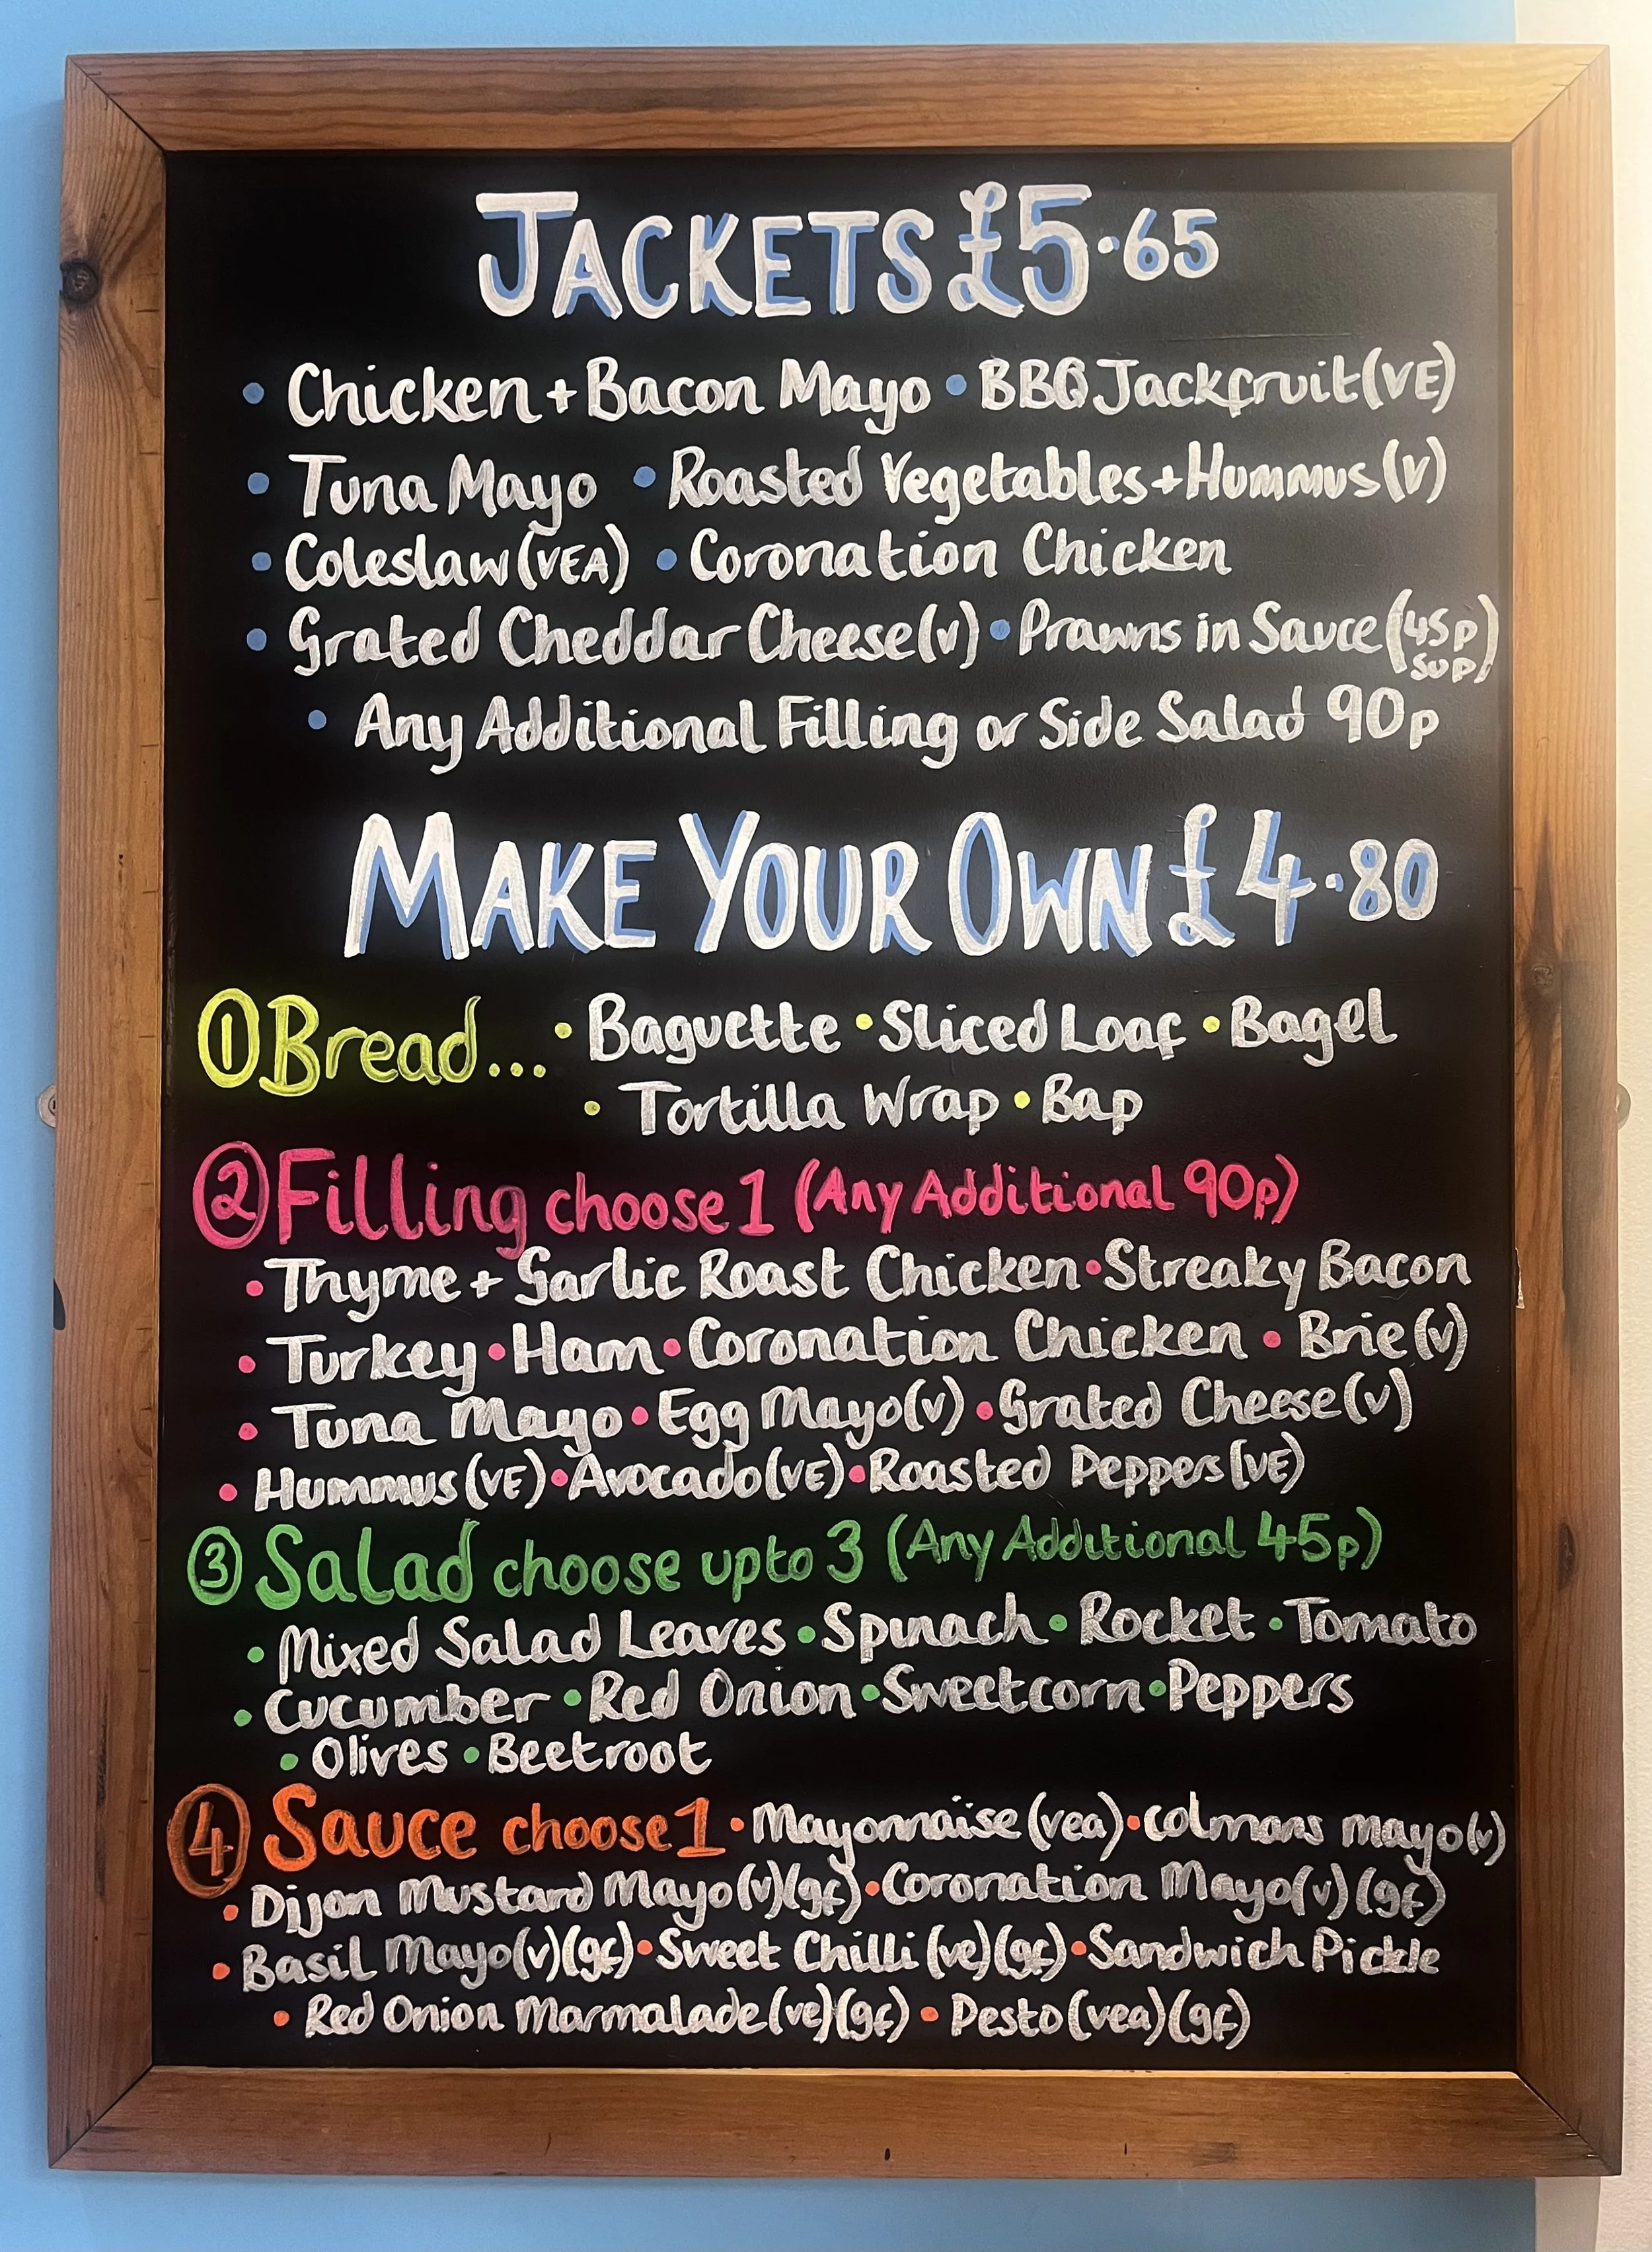 JACKETS £5.65
• Chicken + Bacon Mayo • BBQ Jackfruit (VE)
• Tuna Mayo • Roasted Vegetables + Hummus (V)
• Coleslaw (VEA) • Coronation Chicken
• Grated Cheddar Cheese (v) • Prawns in Sauce (45p sup)
• Any Additional Filling or Side Salad 90p
MAKE YOUR OWN £4.80
① Bread... • Baguette • Sliced Loaf • Bagel
• Tortilla Wrap • Bap
② Filling choose 1 (Any Additional 90p)
• Thyme + Garlic Roast Chicken • Streaky Bacon
• Turkey • Ham • Coronation Chicken • Brie (v)
• Tuna Mayo • Egg Mayo (v) • Grated Cheese (v)
• Hummus (VE) • Avocado (VE) • Roasted Peppers (VE)
③ Salad choose upto 3 (Any Additional 45p)
• Mixed Salad Leaves • Spinach • Rocket • Tomato
• Cucumber • Red Onion • Sweetcorn • Peppers
• Olives • Beetroot
④ Sauce choose 1 • Mayonnaise (vea) • colmans mayo (v)
• Dijon Mustard Mayo (v) (gf) • Coronation Mayo (v) (gf)
• Basil Mayo (v) (gf) • Sweet Chilli (ve) (gf) • Sandwich Pickle
• Red Onion Marmalade (ve) (gf) • Pesto (vea) (gf)